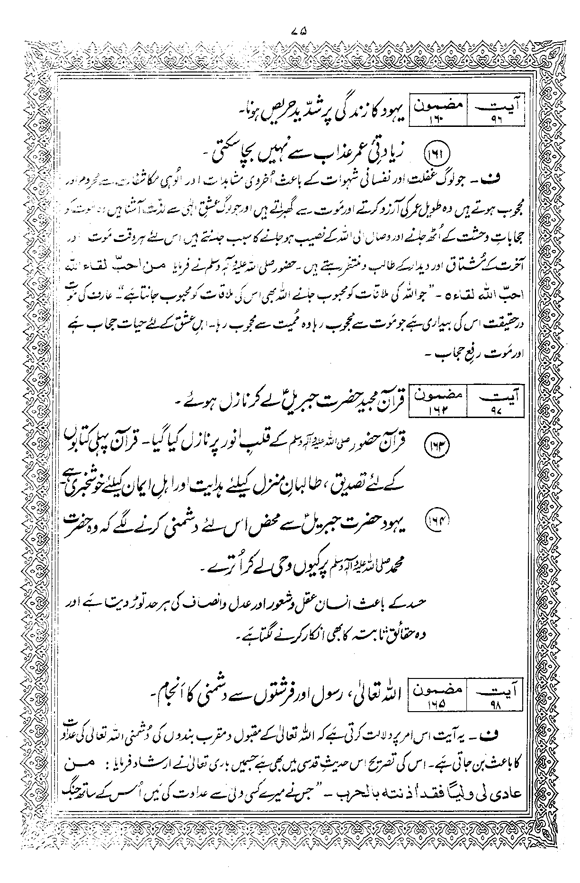 ۷۵
آیت ۹۶ مضمون ۱۶۰ یہود کا زندگی پر شدید حریص ہونا۔
۱۶۱ زیادتیٔ عمر عذاب سے نہیں بچا سکتی ۔
ف ۔ جو لوگ غفلت اور نفسانی شہوات کے باعث اُخروی مشاہدات اور اُلوہی مکاشفات سے محروم اور
محجوب ہوتے ہیں وہ طویل عمر کی آرزو کرتے اور موت سے گھبراتے ہیں اور جو لوگ عشقِ الٰہی سے لذت آشنا ہیں وہ موت کو
حجاباتِ وحشت کے اُٹھ جانے اور وصالِ الی اللہ کے نصیب ہو جانے کا سبب جانتے ہیں اس لئے ہر وقت موت اور
آخرت کے مُشتاق اور دیدار کے طالب و منتظر رہتے ہیں۔ حضور صلی اللہ علیہ وآلہ وسلم نے فرمایا من احبّ لقاء اللہ
احبّ اللہ لقاءہ ۔ ”جو اللہ کی ملاقات کو محبوب جانے اللہ بھی اس کی ملاقات کو محبوب جانتا ہے“۔ عارف کی موت
در حقیقت اس کی بیداری ہے جو موت سے محجوب رہا وہ مُمیت سے محجوب رہا۔ اہلِ عشق کے لئے حیات حجاب ہے
اور موت رفعِ حجاب ۔
آیت ۹۷ مضمون ۱۶۲ قرآن مجید حضرت جبریلؑ لے کر نازل ہوئے ۔
۱۶۳ قرآن حضور صلی اللہ علیہ وآلہ وسلم کے قلبِ انور پر نازل کیا گیا۔ قرآن پہلی کتابوں
کے لئے تصدیق ، طالبانِ منزل کیلئے ہدایت اور اہلِ ایمان کیلئے خوشخبری ہے
۱۶۴ یہود حضرت جبریلؑ سے محض اس لئے دشمنی کرنے لگے کہ وہ حضرت
محمد صلی اللہ علیہ وآلہ وسلم پر کیوں وحی لے کر اُترے ۔
حسد کے باعث انسان عقل و شعور اور عدل و انصاف کی ہر حد توڑ دیتا ہے اور
وہ حقائقِ ثابتہ کا بھی انکار کرنے لگتا ہے۔
آیت ۹۸ مضمون ۱۶۵ اللہ تعالیٰ، رسول اور فرشتوں سے دشمنی کا انجام ۔
ف ۔ یہ آیت اس امر پر دلالت کرتی ہے کہ اللہ تعالیٰ کے مقبول و مقرب بندوں کی دُشمنی اللہ تعالیٰ کی عداوت
کا باعث بن جاتی ہے۔ اس کی تصریح اس حدیثِ قدسی میں بھی ہے جسمیں باری تعالیٰ نے ارشاد فرمایا : من
عادی لی ولیا فقد اٰذنته بالحرب ۔ ”جس نے میرے کسی ولی سے عداوت کی میں اُس کے ساتھ جنگ